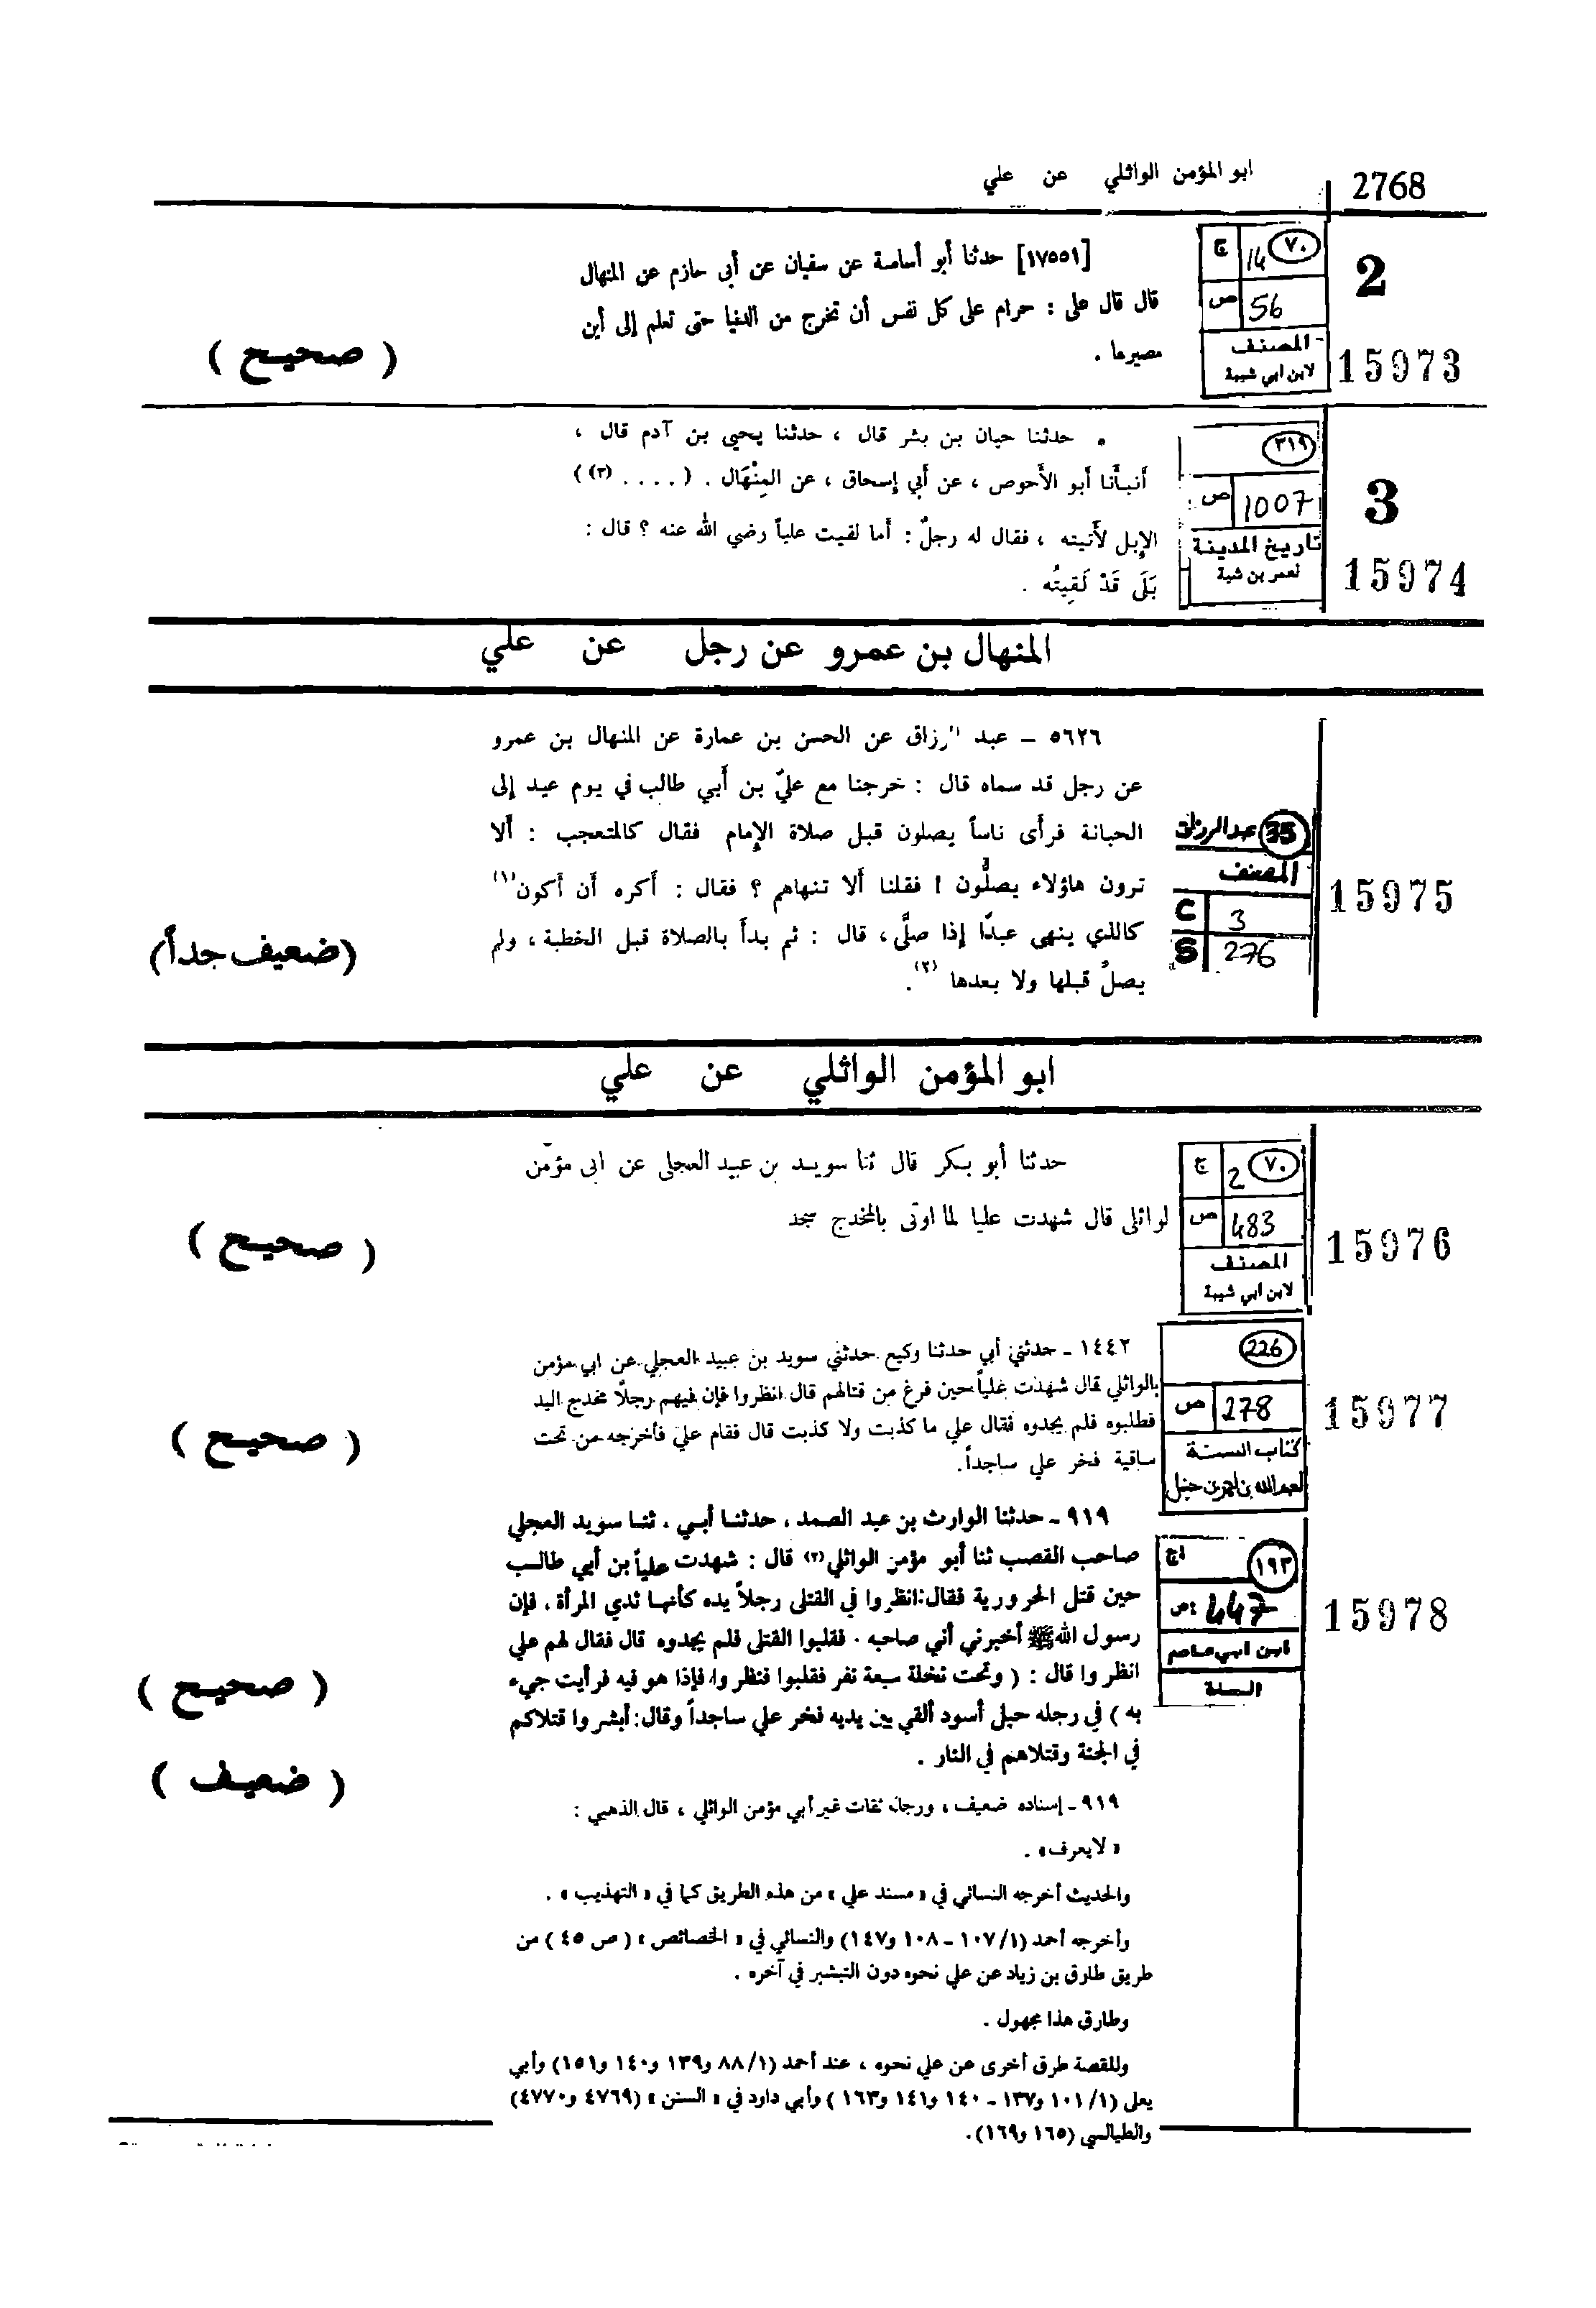 2768
ابو المؤمن الواثلي عن علي
2
15973
٧٠
ج 14
ص 56
المصنف
لابن ابي شيبة
[١٧٥٥١] حدثنا أبو أسامة عن سفيان عن أبى حازم عن المنهال
قال قال على : حرام على كل نفس أن تخرج من الدنيا حتى تعلم إلى أين
مصيرها .
( صحيح )
3
15974
٣١٩
ص 1007
تاريخ المدينة
لعمر بن شبة
• حدثنا حيان بن بشر قال ، حدثنا يحيى بن آدم قال ،
أنبأنا أبو الأحوص ، عن أبي إسحاق ، عن المِنْهَال . ( . . . . (٣) )
الإبل لأتيته ، فقال له رجلٌ : أما لقيت علياً رضي الله عنه ؟ قال :
بَلَى قَدْ لَقِيتُه .
المنهال بن عمرو عن رجل عن علي
15975
35 عبدالرزاق
المصنف
C 3
S 276
٥٦٢٦ – عبد الرزاق عن الحسن بن عمارة عن المنهال بن عمرو
عن رجل قد سماه قال : خرجنا مع عليّ بن أبي طالب في يوم عيد إلى
الجبانة فرأى ناساً يصلون قبل صلاة الإمام فقال كالمتعجب : ألا
ترون هاؤلاء يصلُّون ! فقلنا ألا تنهاهم ؟ فقال : أكره أن أكون(١)
كالذي ينهى عبدًا إذا صلَّى ، قال : ثم بدأ بالصلاة قبل الخطبة ، ولم
يصلُ قبلها ولا بعدها (٢) .
(ضعيف جداً)
ابو المؤمن الواثلي عن علي
15976
٧٠
ج 2
ص 483
المصنف
لابن ابي شيبة
حدثنا أبو بكر قال ثنا سويد بن عبيد العجلى عن ابى مؤمن
لوائلى قال شهدت عليا لما اوتى بالمخدج سجد
( صحيح )
15977
226
ص 278
كتاب السنة
لعبدالله بن احمد بن حنبل
١٤٤٢ ـ حدثني أبي حدثنا وكيع حدثني سويد بن عبيد العجلي عن ابي مؤمن
الوائلي قال شهدت علياً حين فرغ من قتالهم قال انظروا فإن فيهم رجلاً مخدج اليد
فطلبوه فلم يجدوه فقال علي ما كذبت ولا كذبت قال فقام علي فأخرجه من تحت
ساقية فخر علي ساجداً.
( صحيح )
15978
١٩٣
ج
ص 447
ابن ابي عاصم
السنة
٩١٩ ـ حدثنا الوارث بن عبد الصمد ، حدثنا أبي . ثنا سويد العجلي
صاحب القصب ثنا أبو مؤمن الوائلي(٢) قال : شهدت علياً بن أبي طالب
حين قتل الحرورية فقال: انظروا في القتلى رجلاً يده كأنها ثدي المرأة ، فإن
رسول الله ﷺ أخبرني أني صاحبه . فقلبوا القتلى فلم يجدوه قال فقال لهم علي
انظروا قال : ( وتحت نخلة سبعة نفر فقلبوا فنظروا، فإذا هو فيه فرأيت جيء
به ) في رجله حبل أسود ألقي بين يديه فخر علي ساجداً وقال: أبشروا قتلاكم
في الجنة وقتلاهم في النار .
( صحيح )
( ضعيف )
٩١٩ ـ إسناده ضعيف ، ورجاله ثقات غير أبي مؤمن الوائلي ، قال الذهبي :
« لا يعرف» .
والحديث أخرجه النسائي في « مسند علي » من هذه الطريق كما في « التهذيب » .
وأخرجه أحمد (١/ ١٠٧ ـ ١٠٨ و١٤٧) والنسائي في « الخصائص » ( ص ٤٥ ) من
طريق طارق بن زياد عن علي نحوه دون التبشير في آخره .
وطارق هذا مجهول .
وللقصة طرق أخرى عن علي نحوه ، عند أحمد (١/ ٨٨ و١٣٩ و١٤٠ و١٥١) وأبي
يعلى (١/ ١٠١ و١٣٧ ـ ١٤٠ و١٤١ و١٦٣ ) وأبي داود في « السنن » (٤٧٦٩ و٤٧٧٠)
والطيالسي (١٦٥ و١٦٩).